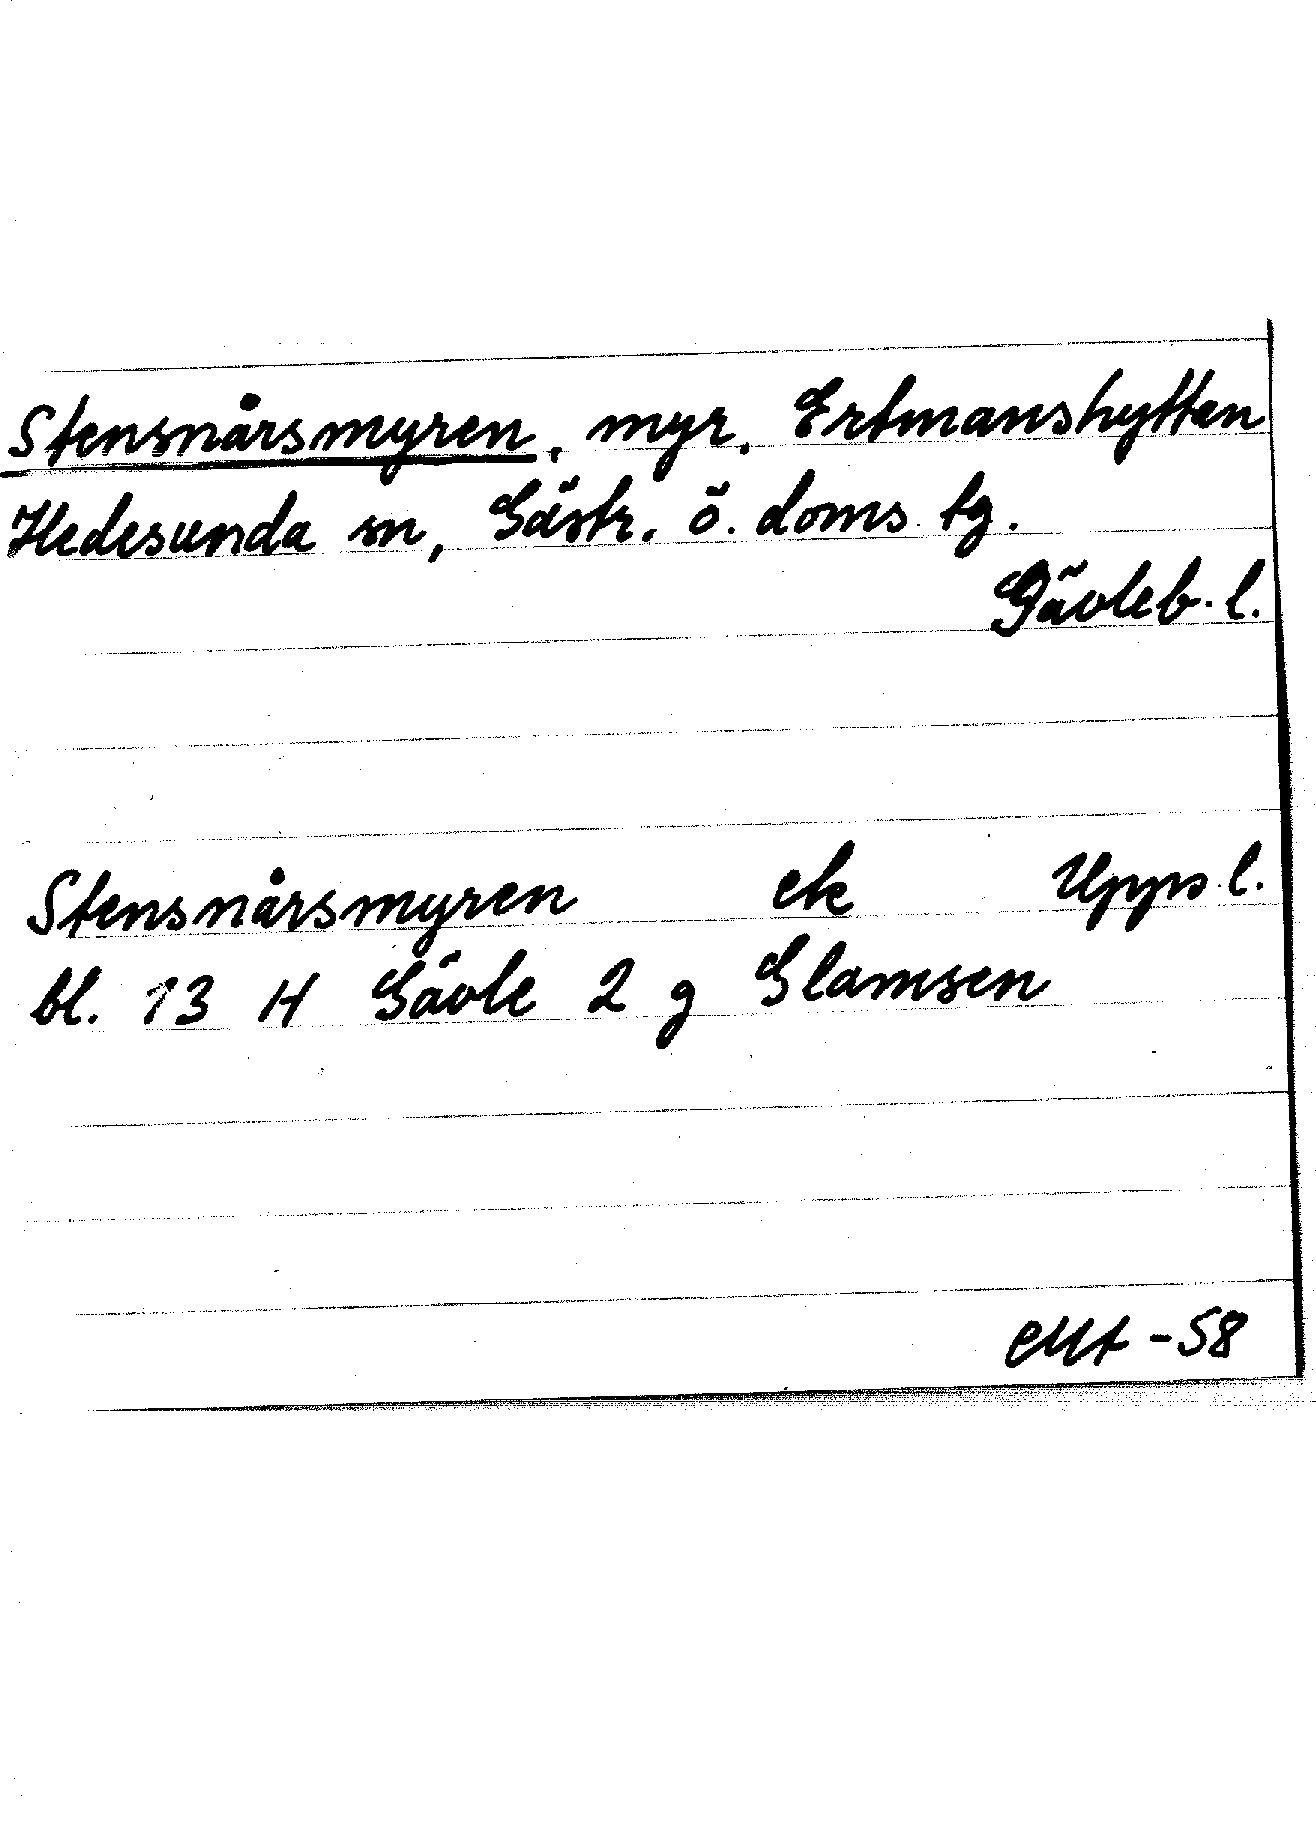 Stensnårsmyren, myr, Ertmanshytten
Hedesunda sn, Gästr. ö. doms. tg.
Gävleb. l.
Stensnårsmyren ek Upps. l.
bl. 13 H Gävle 2 g Glamsen
-58